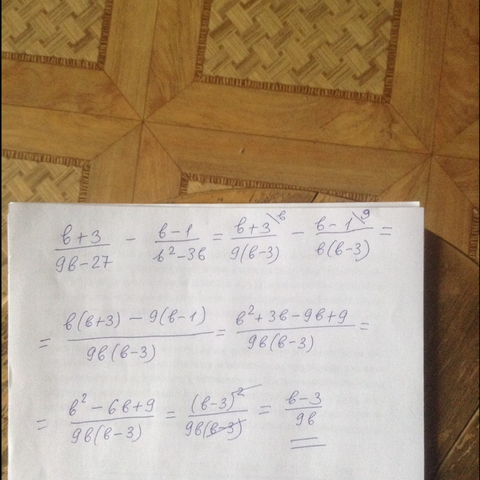 (b+3)/(9b-27) - (b-1)/(b²-3b) = (b+3\b)/(9(b-3)) - (b-1\9)/(b(b-3)) =
= (b(b+3)-9(b-1))/(9b(b-3)) = (b²+3b-9b+9)/(9b(b-3)) =
= (b²-6b+9)/(9b(b-3)) = (b-3)²/(9b(b-3)) = (b-3)/(9b)